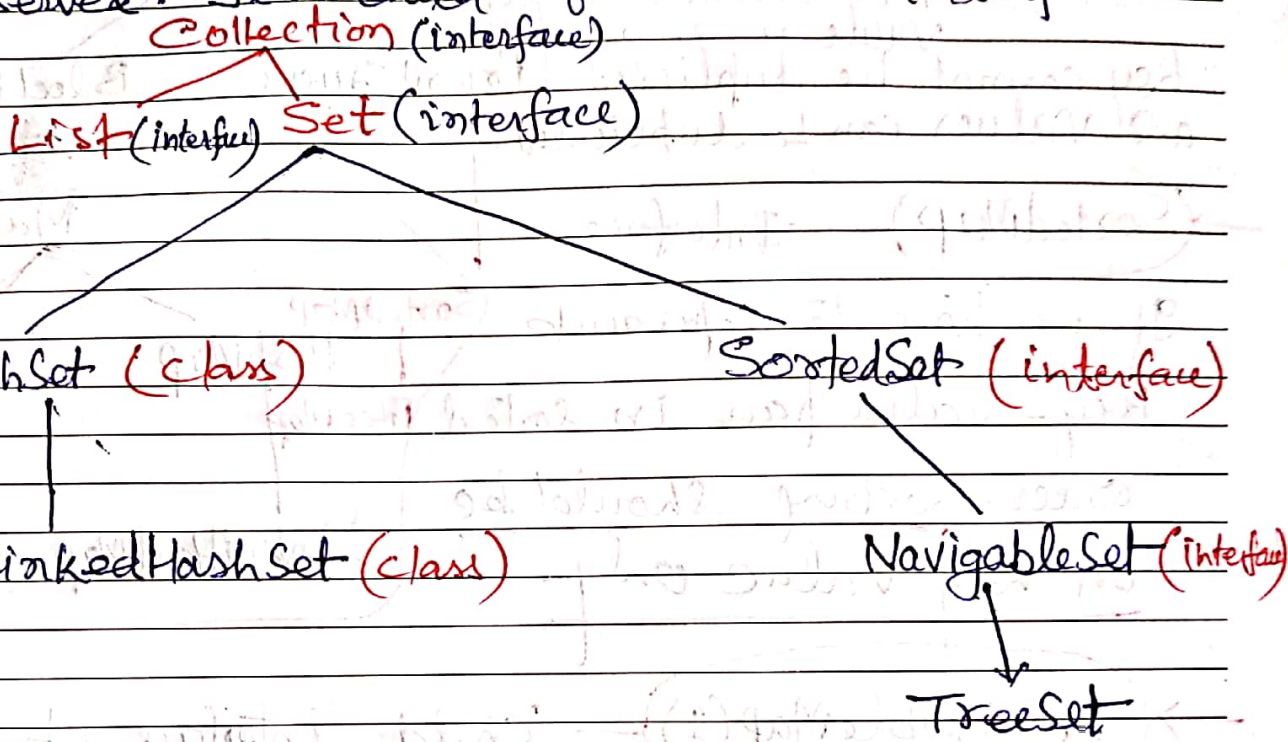 Collection (interface)
List (interfue) Set (interface)
hSet (class) SortedSet (interface)
inkedHashSet (class) NavigableSet (interfau)
TreeSet